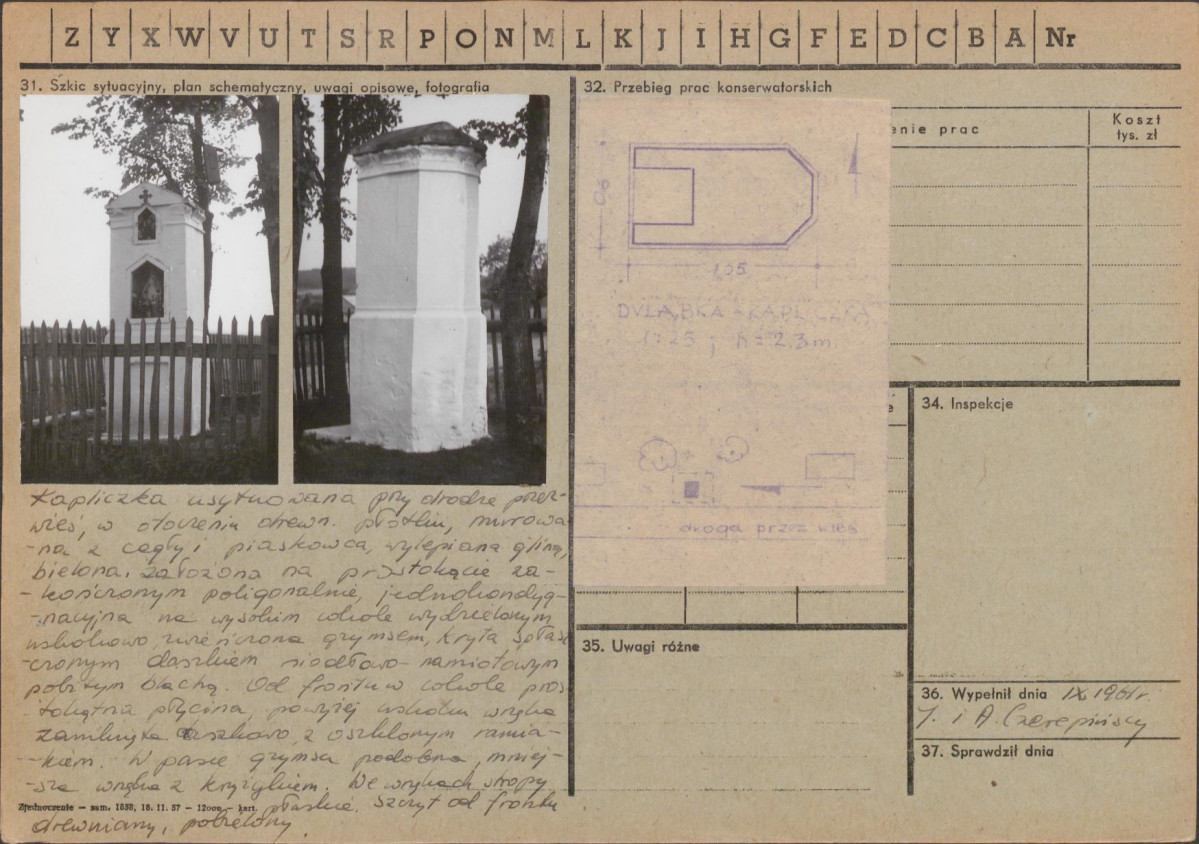 Z Y X W V U T S R P O N M L K J I H G F E D C B A Nr
31. Szkic sytuacyjny, plan schematyczny, uwagi opisowe, fotografia
Kapliczka usytuowana przy drodze przez
wieś, w otoczeniu drewn. płotku, murowa-
-na z cegły i piaskowca, wylepiana gliną,
bielona. Założona na prostokącie za-
-kończonym poligonalnie, jednokondyg-
-nacyjna na wysokim cokole wydzielonym
uskokowo, zwieńczona gzymsem, kryta spłasz
-czonym daszkiem siodłowo-namiotowym
pobitym blachą. Od frontu w cokole pros
-tokątna płycina, powyżej uskoku wnęka
zamknięta z oszklonym ramia-
-kiem. W pasie gzymsu podobna, mniej-
-sza wnęka z krzyżykiem. We wnękach stropy
płaskie. Szczyt od frontu
Zjednoczenie — zam. 1858, 18. 11. 57 — 12000 — kart.
drewniany, pobielony.
32. Przebieg prac konserwatorskich
enie prac
Koszt
tys. zł
90
105
DULĄBKA - KAPLICZKA
1:25 ; h = 2.3 m.
droga przez wieś
34. Inspekcje
35. Uwagi różne
36. Wypełnił dnia IX 1961 r.
J. i A. Czerepińscy
37. Sprawdził dnia